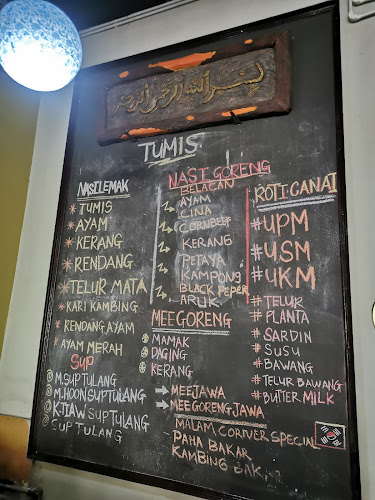 بسم الله الرحمن الرحيم
TUMIS
NASI LEMAK
* TUMIS
* AYAM
* KERANG
* RENDANG
* TELUR MATA
* KARI KAMBING
* RENDANG AYAM
* AYAM MERAH
SUP
M.SUP TULANG
M.HOON SUP TULANG
K.TIAW SUP TULANG
SUP TULANG
NASI GORENG
BELACAN
AYAM
CINA
CORNBEEF
KERANG
PETAYA
KAMPONG
BLACK PEPER
ARUK
MEE GORENG
MAMAK
DAGING
KERANG
→ MEE JAWA
→ MEE GORENG JAWA
MALAM CORNER SPECIAL
PAHA BAKAR
KAMBING BAK
ROTI CANAI
#UPM
#USM
#UKM
# TELUR
# PLANTA
# SARDIN
# SUSU
# BAWANG
# TELUR BAWANG
# BUTTER MILK